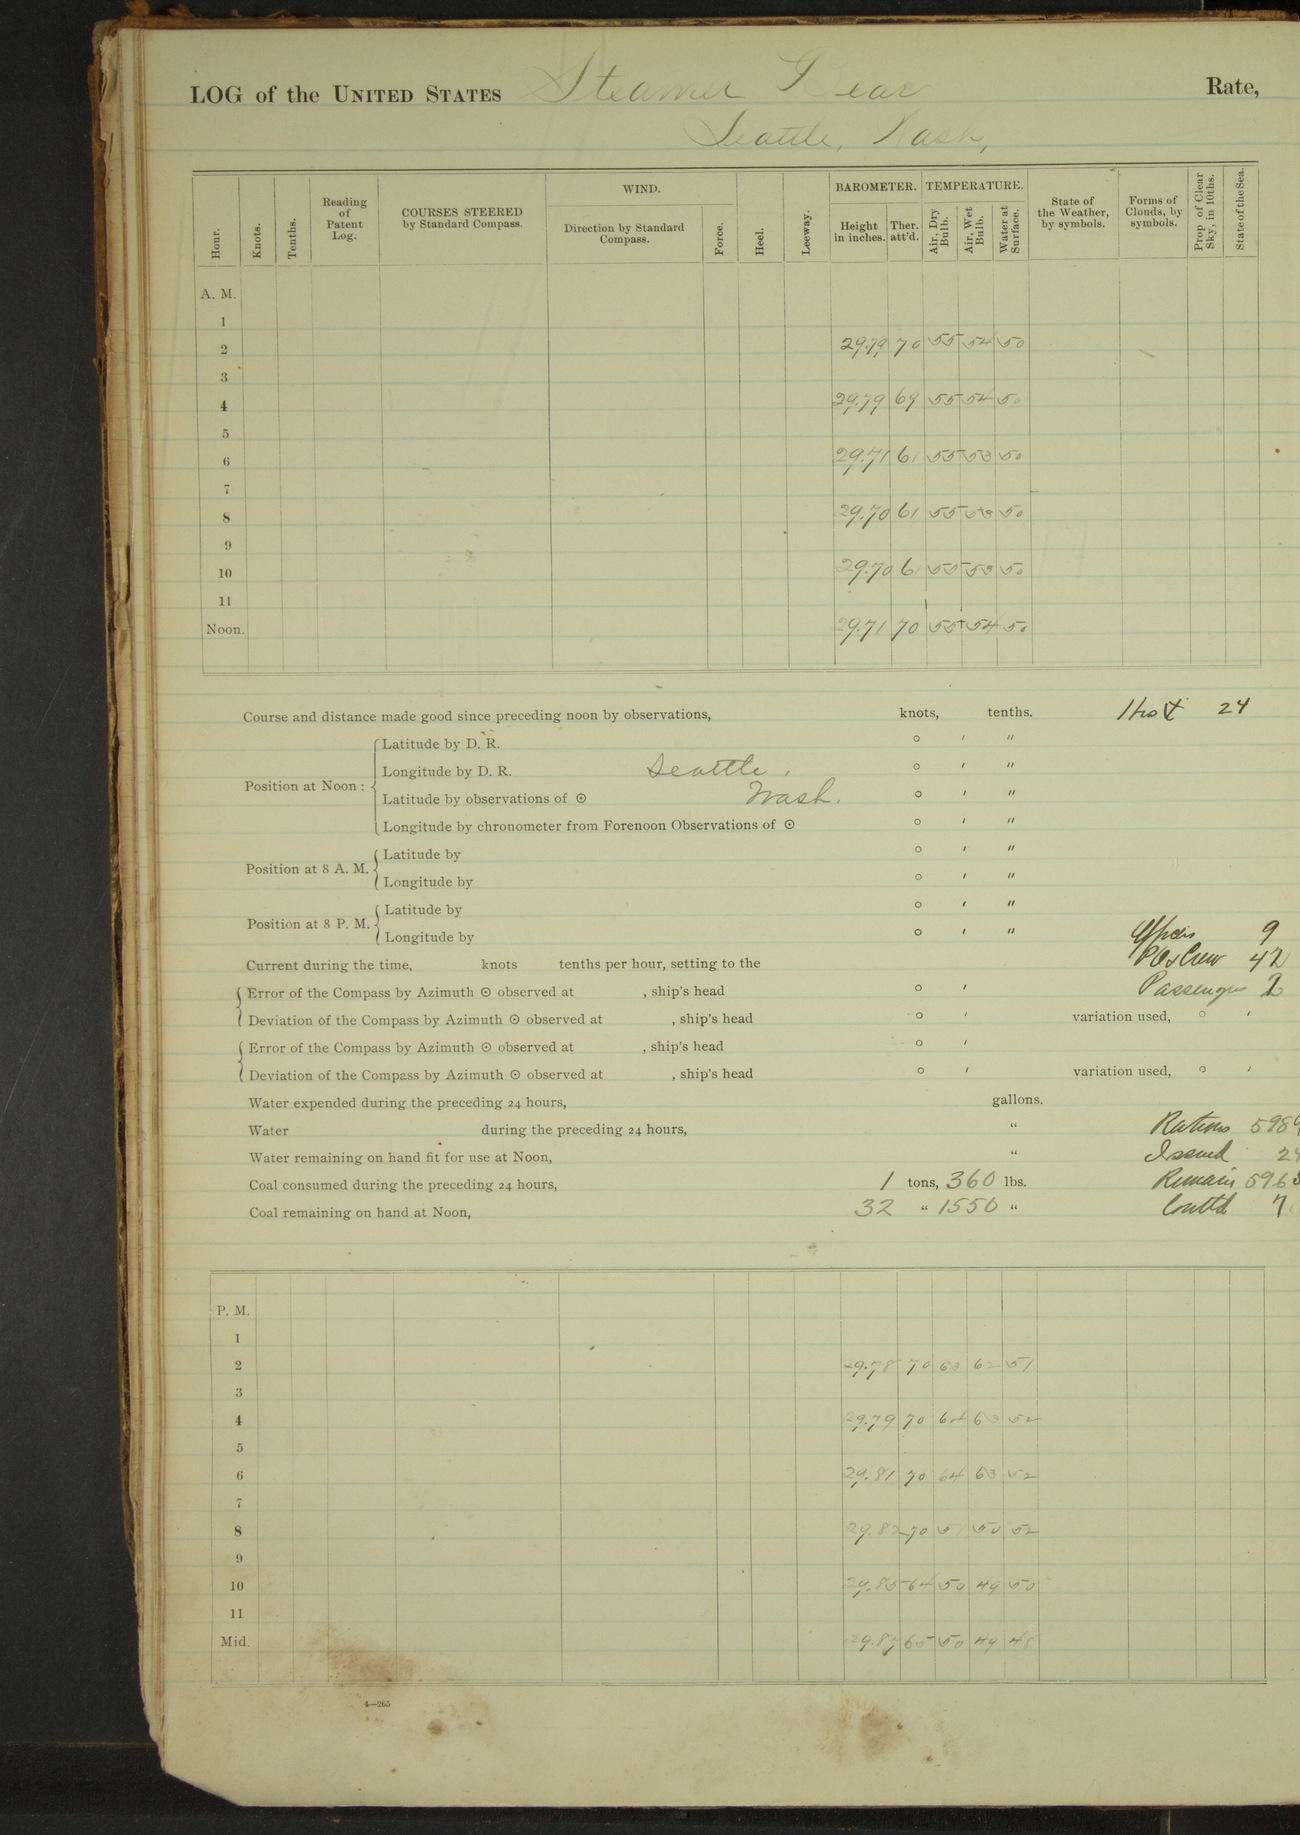 LOG of the UNITED STATES Steamer Bear Rate,
Seattle, Wash,
Hour. Knots. Tenths. Reading of Patent Log. COURSES STEERED by Standard Compass. WIND. Direction by Standard Compass. Force. Heel. Leeway. BAROMETER. Height in inches. Ther. att'd. TEMPERATURE. Air, Dry Bulb. Air, Wet Bulb. Water at Surface. State of the Weather, by symbols. Forms of Clouds, by symbols. Prop of Clear Sky, in 10ths. State of the Sea.
A. M.
1
2 29.79 70 55 54 50
3
4 29.79 69 55 54 50
5
6 29.71 61 55 53 50
7
8 29.70 61 55 53 50
9
10 29.70 61 55 53 50
11
Noon. 29.71 70 55 54 50
Course and distance made good since preceding noon by observations, knots, tenths. 24
Position at Noon :
Latitude by D. R. ° ′ ″
Longitude by D. R. Seattle, ° ′ ″
Latitude by observations of ☉ Wash. ° ′ ″
Longitude by chronometer from Forenoon Observations of ☉ ° ′ ″
Position at 8 A. M.
Latitude by ° ′ ″
Longitude by ° ′ ″
Position at 8 P. M.
Latitude by ° ′ ″
Longitude by ° ′ ″ Officers 9
Current during the time, knots tenths per hour, setting to the Crew 42
Error of the Compass by Azimuth ☉ observed at , ship's head ° ′ Passengers 2
Deviation of the Compass by Azimuth ☉ observed at , ship's head ° ′ variation used, ° ′
Error of the Compass by Azimuth ☉ observed at , ship's head ° ′
Deviation of the Compass by Azimuth ☉ observed at , ship's head ° ′ variation used, ° ′
Water expended during the preceding 24 hours, gallons.
Water during the preceding 24 hours, “ Rations 5989
Water remaining on hand fit for use at Noon, “ Issued 24
Coal consumed during the preceding 24 hours, 1 tons, 360 lbs. Remain 5965
Coal remaining on hand at Noon, 32 “ 1550 “
P. M.
1
2 29.78 70 63 62 51
3
4 29.79 70 64 63 52
5
6 29.81 70 64 63 52
7
8 29.82 70 51 50 52
9
10 29.85 64 50 49 50
11
Mid. 29.87 65 50 49 48
4—265